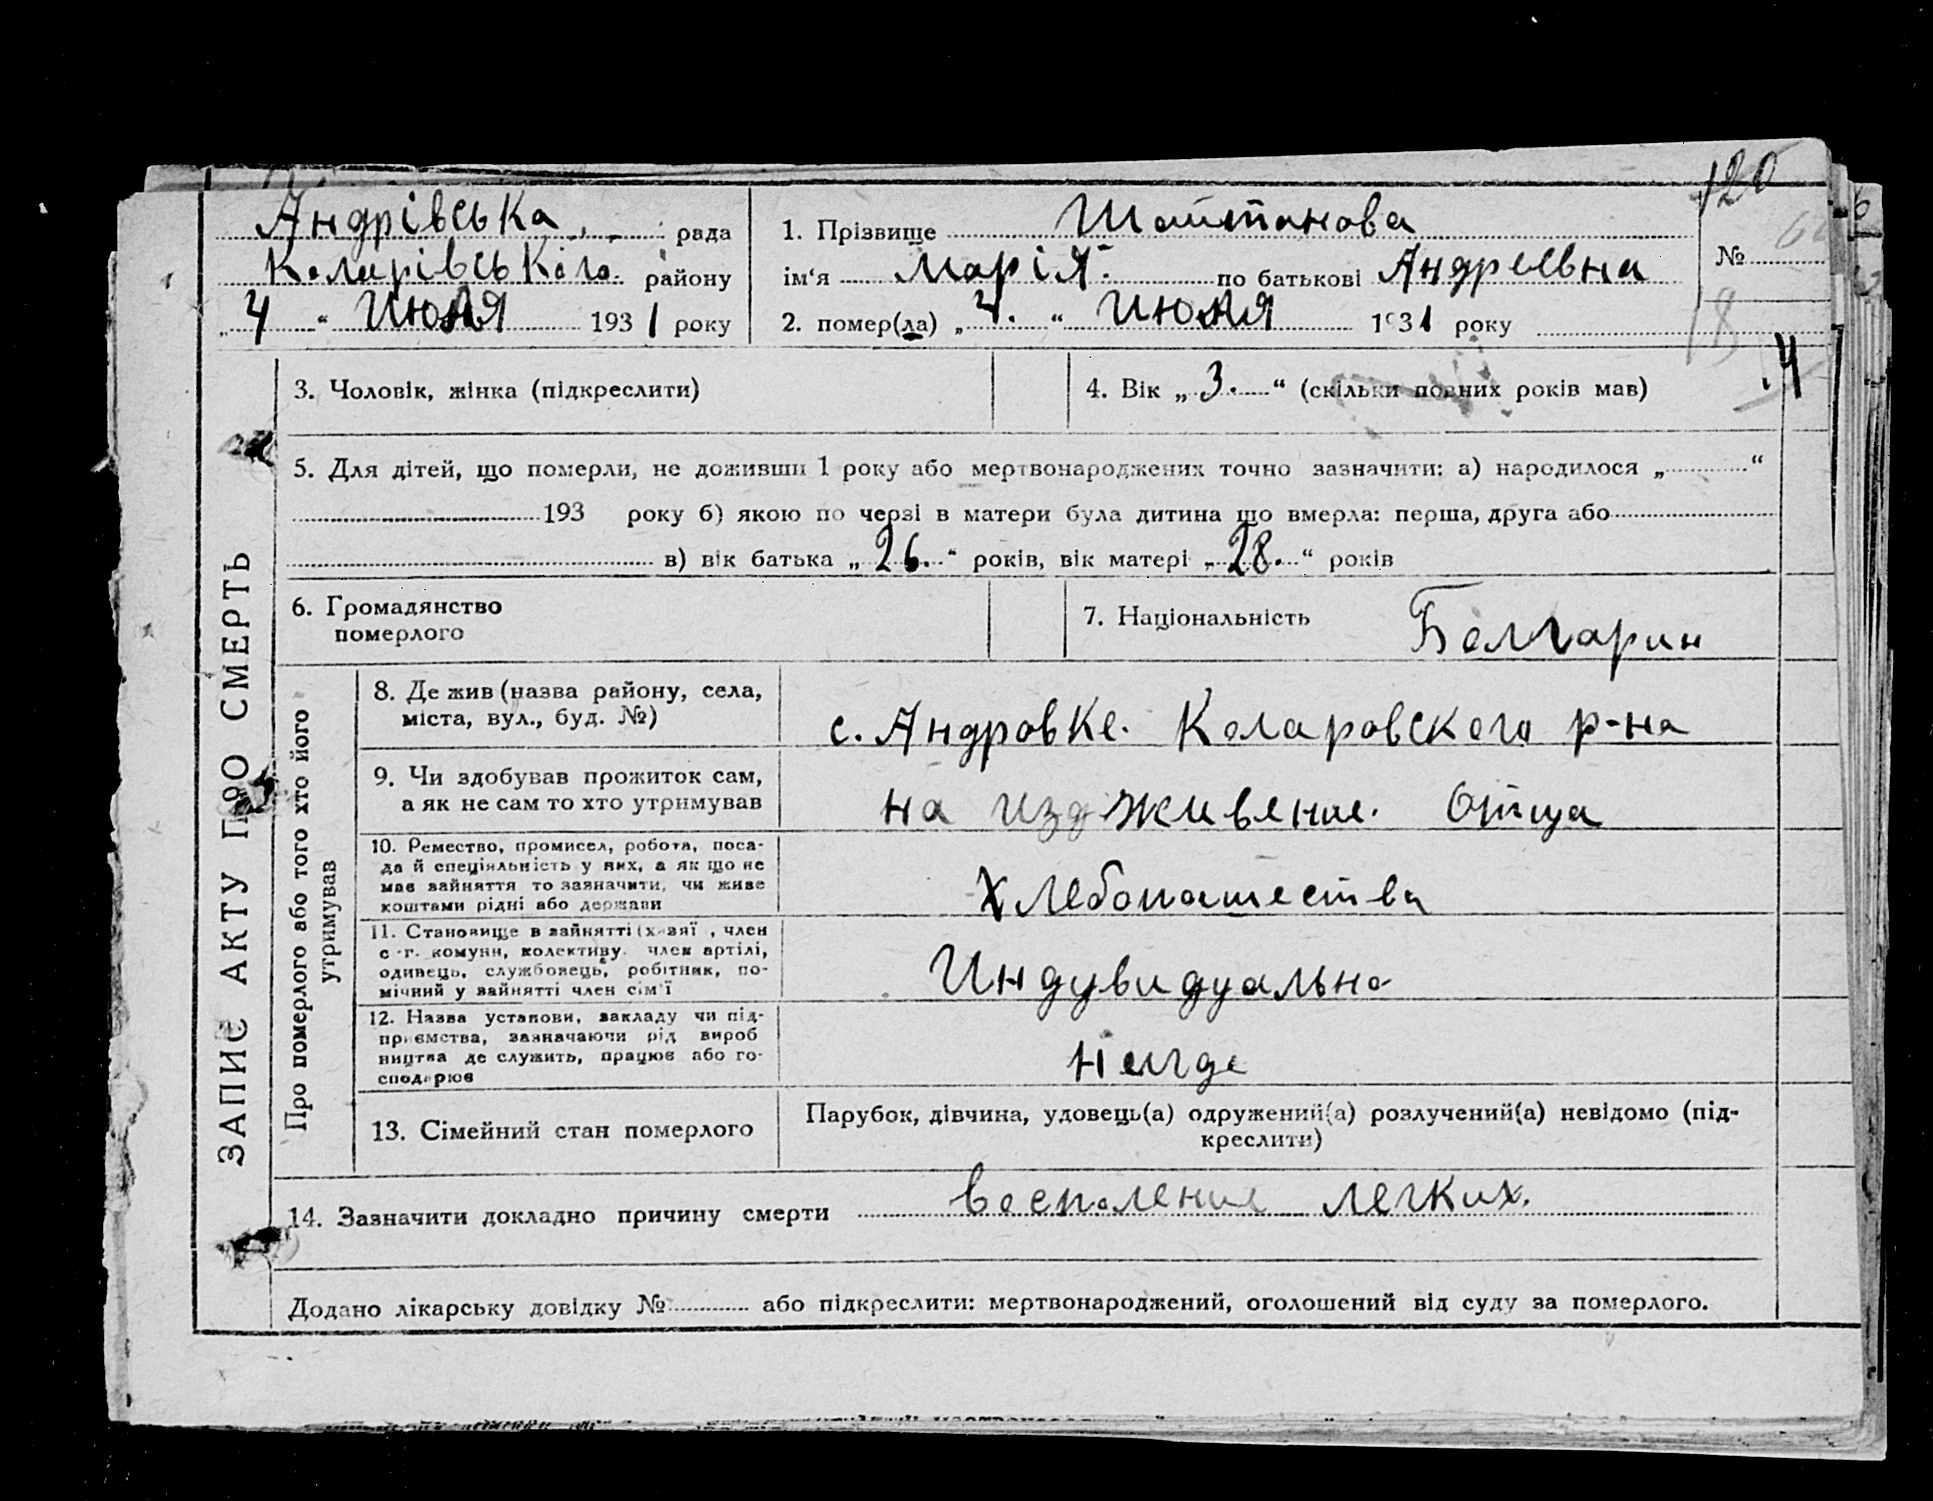 120
Андрівська рада
Коларівського району
„4“ июля 1931 року
1. Прізвище Шайтанова
№
ім‘я Марія по батькові Андреевна
2. помер(ла) „4.“ июля 1931 року
18
3. Чоловік, жінка (підкреслити)
4. Вік „3.“ (скільки повних років мав)
4
5. Для дітей, що померли, не доживши 1 року або мертвонароджених точно зазначити: а) народилося „ “
193 року б) якою по черзі в матери була дитина що вмерла: перша, друга або
в) вік батька „26.“ років, вік матері „28.“ років
6. Громадянство
померлого
7. Національність Болгарин
ЗАПИС АКТУ ПРО СМЕРТЬ
Про померлого або того хто його
утримував
8. Де жив (назва району, села,
міста, вул., буд. №)
с. Андровке. Коларовского р-на
9. Чи здобував прожиток сам,
а як не сам то хто утримував
на издживение. Отца
10. Ремество, промисел, робота, поса-
да й спеціяльність у них, а як що не
має зайняття то зазначити, чи живе
коштами рідні або держави
Хлебопашества
11. Становище в зайнятті (хазяї, член
с.-г. комуни, колективу, член артілі,
одивець, службовець, робітник, по-
мічний у зайнятті член сім'ї
Индувидуально
12. Назва установи, закладу чи під-
приємства, зазначаючи рід вироб
ництва де служить, працює або го-
сподарює
негде
13. Сімейний стан померлого
Парубок, дівчина, удовець(а) одружений(а) розлучений(а) невідомо (під-
креслити)
14. Зазначити докладно причину смерти восполение легких.
Додано лікарську довідку № або підкреслити: мертвонароджений, оголошений від суду за померлого.